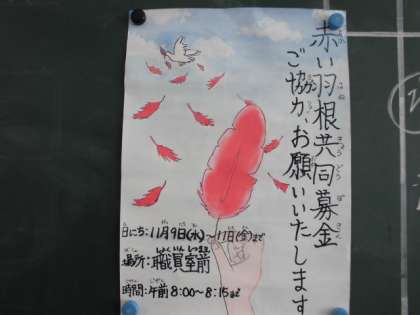 赤い羽根共同募金
ご協力、お願いいたします
日にち:11月9日(水)~11日(金)まで
場所:職員室前
時間:午前8:00~8:15まで